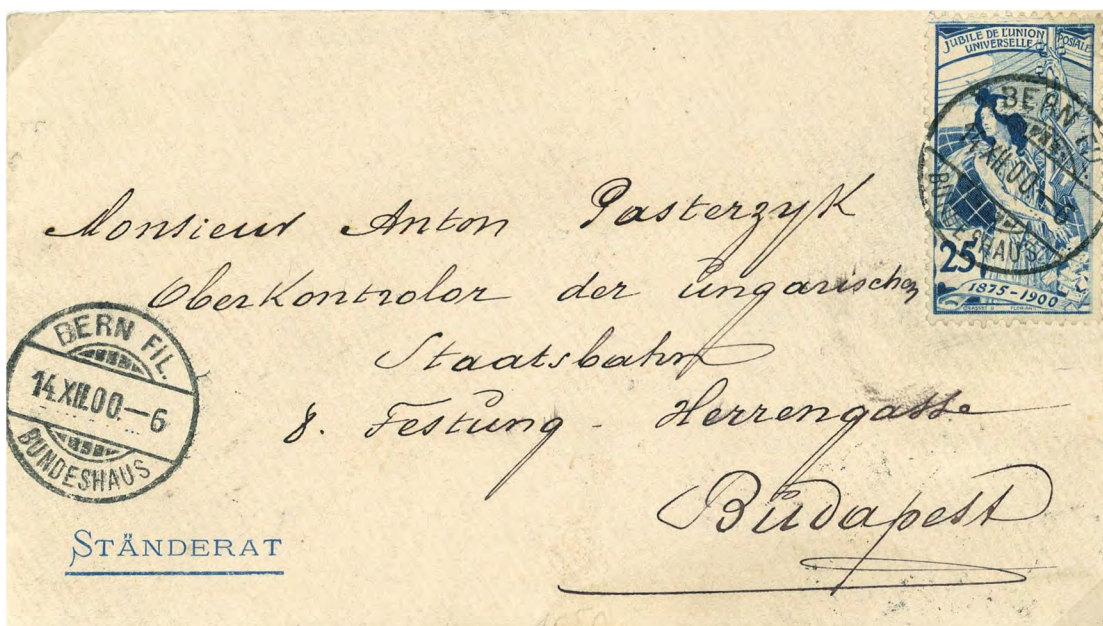 JUBILE DE L'UNION POSTALE
UNIVERSELLE
BERN FIL.
14.XII.00.-6
BUNDESHAUS
25
1875-1900
Monsieur Anton Pasterzyk
OberKontrolor der ungarischen
Staatsbahn
8. Festung - Herrengasse
Budapest
BERN FIL.
14.XII.00.-6
BUNDESHAUS
STÄNDERAT